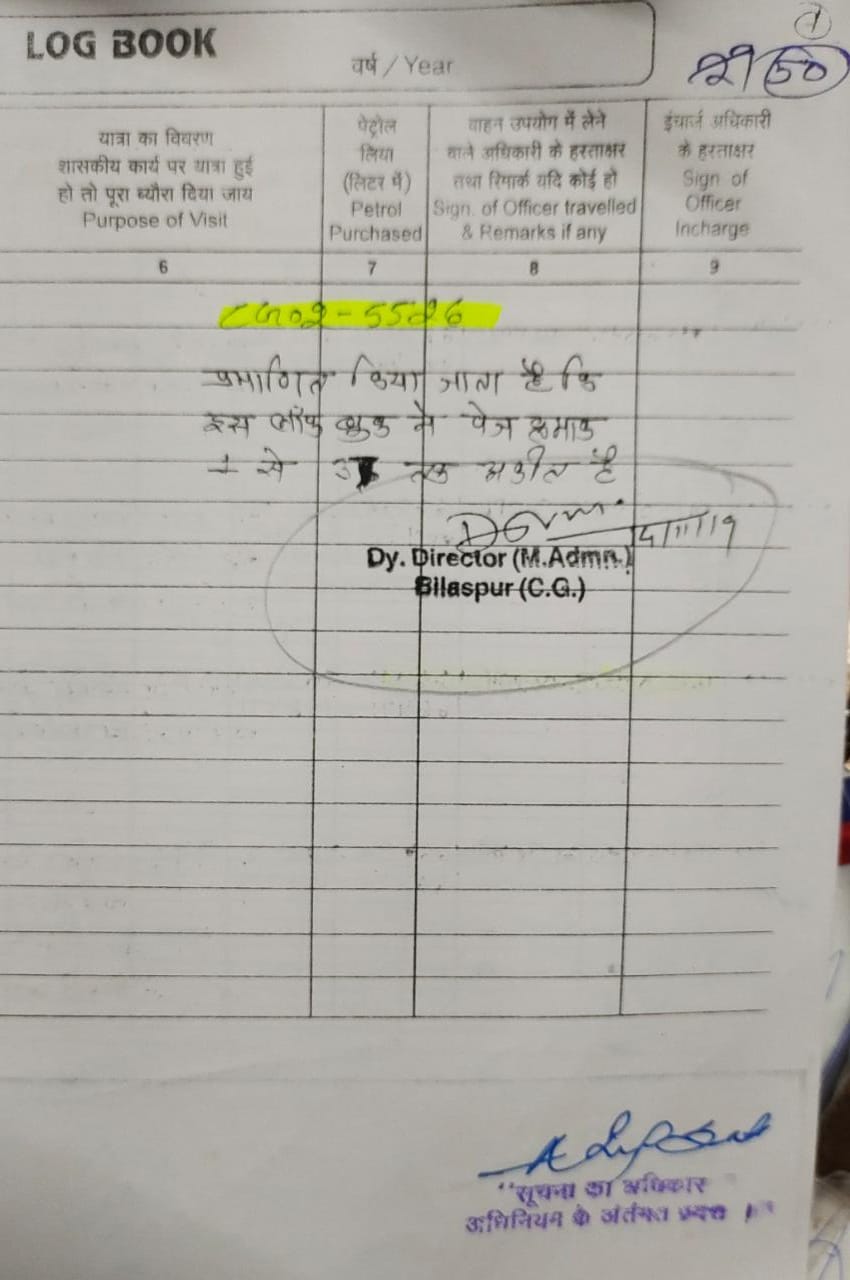 1
50
LOG BOOK
वर्ष / Year
यात्रा का विवरण
शासकीय कार्य पर यात्रा हुई
हो तो पूरा ब्यौरा दिया जाय
Purpose of Visit
पेट्रोल
लिया
(लिटर में)
Petrol
Purchased
वाहन उपयोग में लेने
वाले अधिकारी के हस्ताक्षर
तथा रिमार्क यदि कोई हो
Sign. of Officer travelled
& Remarks if any
इंचार्ज अधिकारी
के हस्ताक्षर
Sign of
Officer
Incharge
6 7 8 9
CG02-5526
प्रमाणित किया जाता है कि
इस लॉग बुक में पेज क्रमांक
1 से तक है
Dy. Director (M.Admn.)
Bilaspur (C.G.)
"सूचना का अधिकार
अधिनियम के अंतर्गत प्रदत्त"